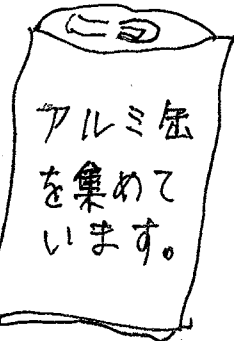 アルミ缶
を集めて
います。